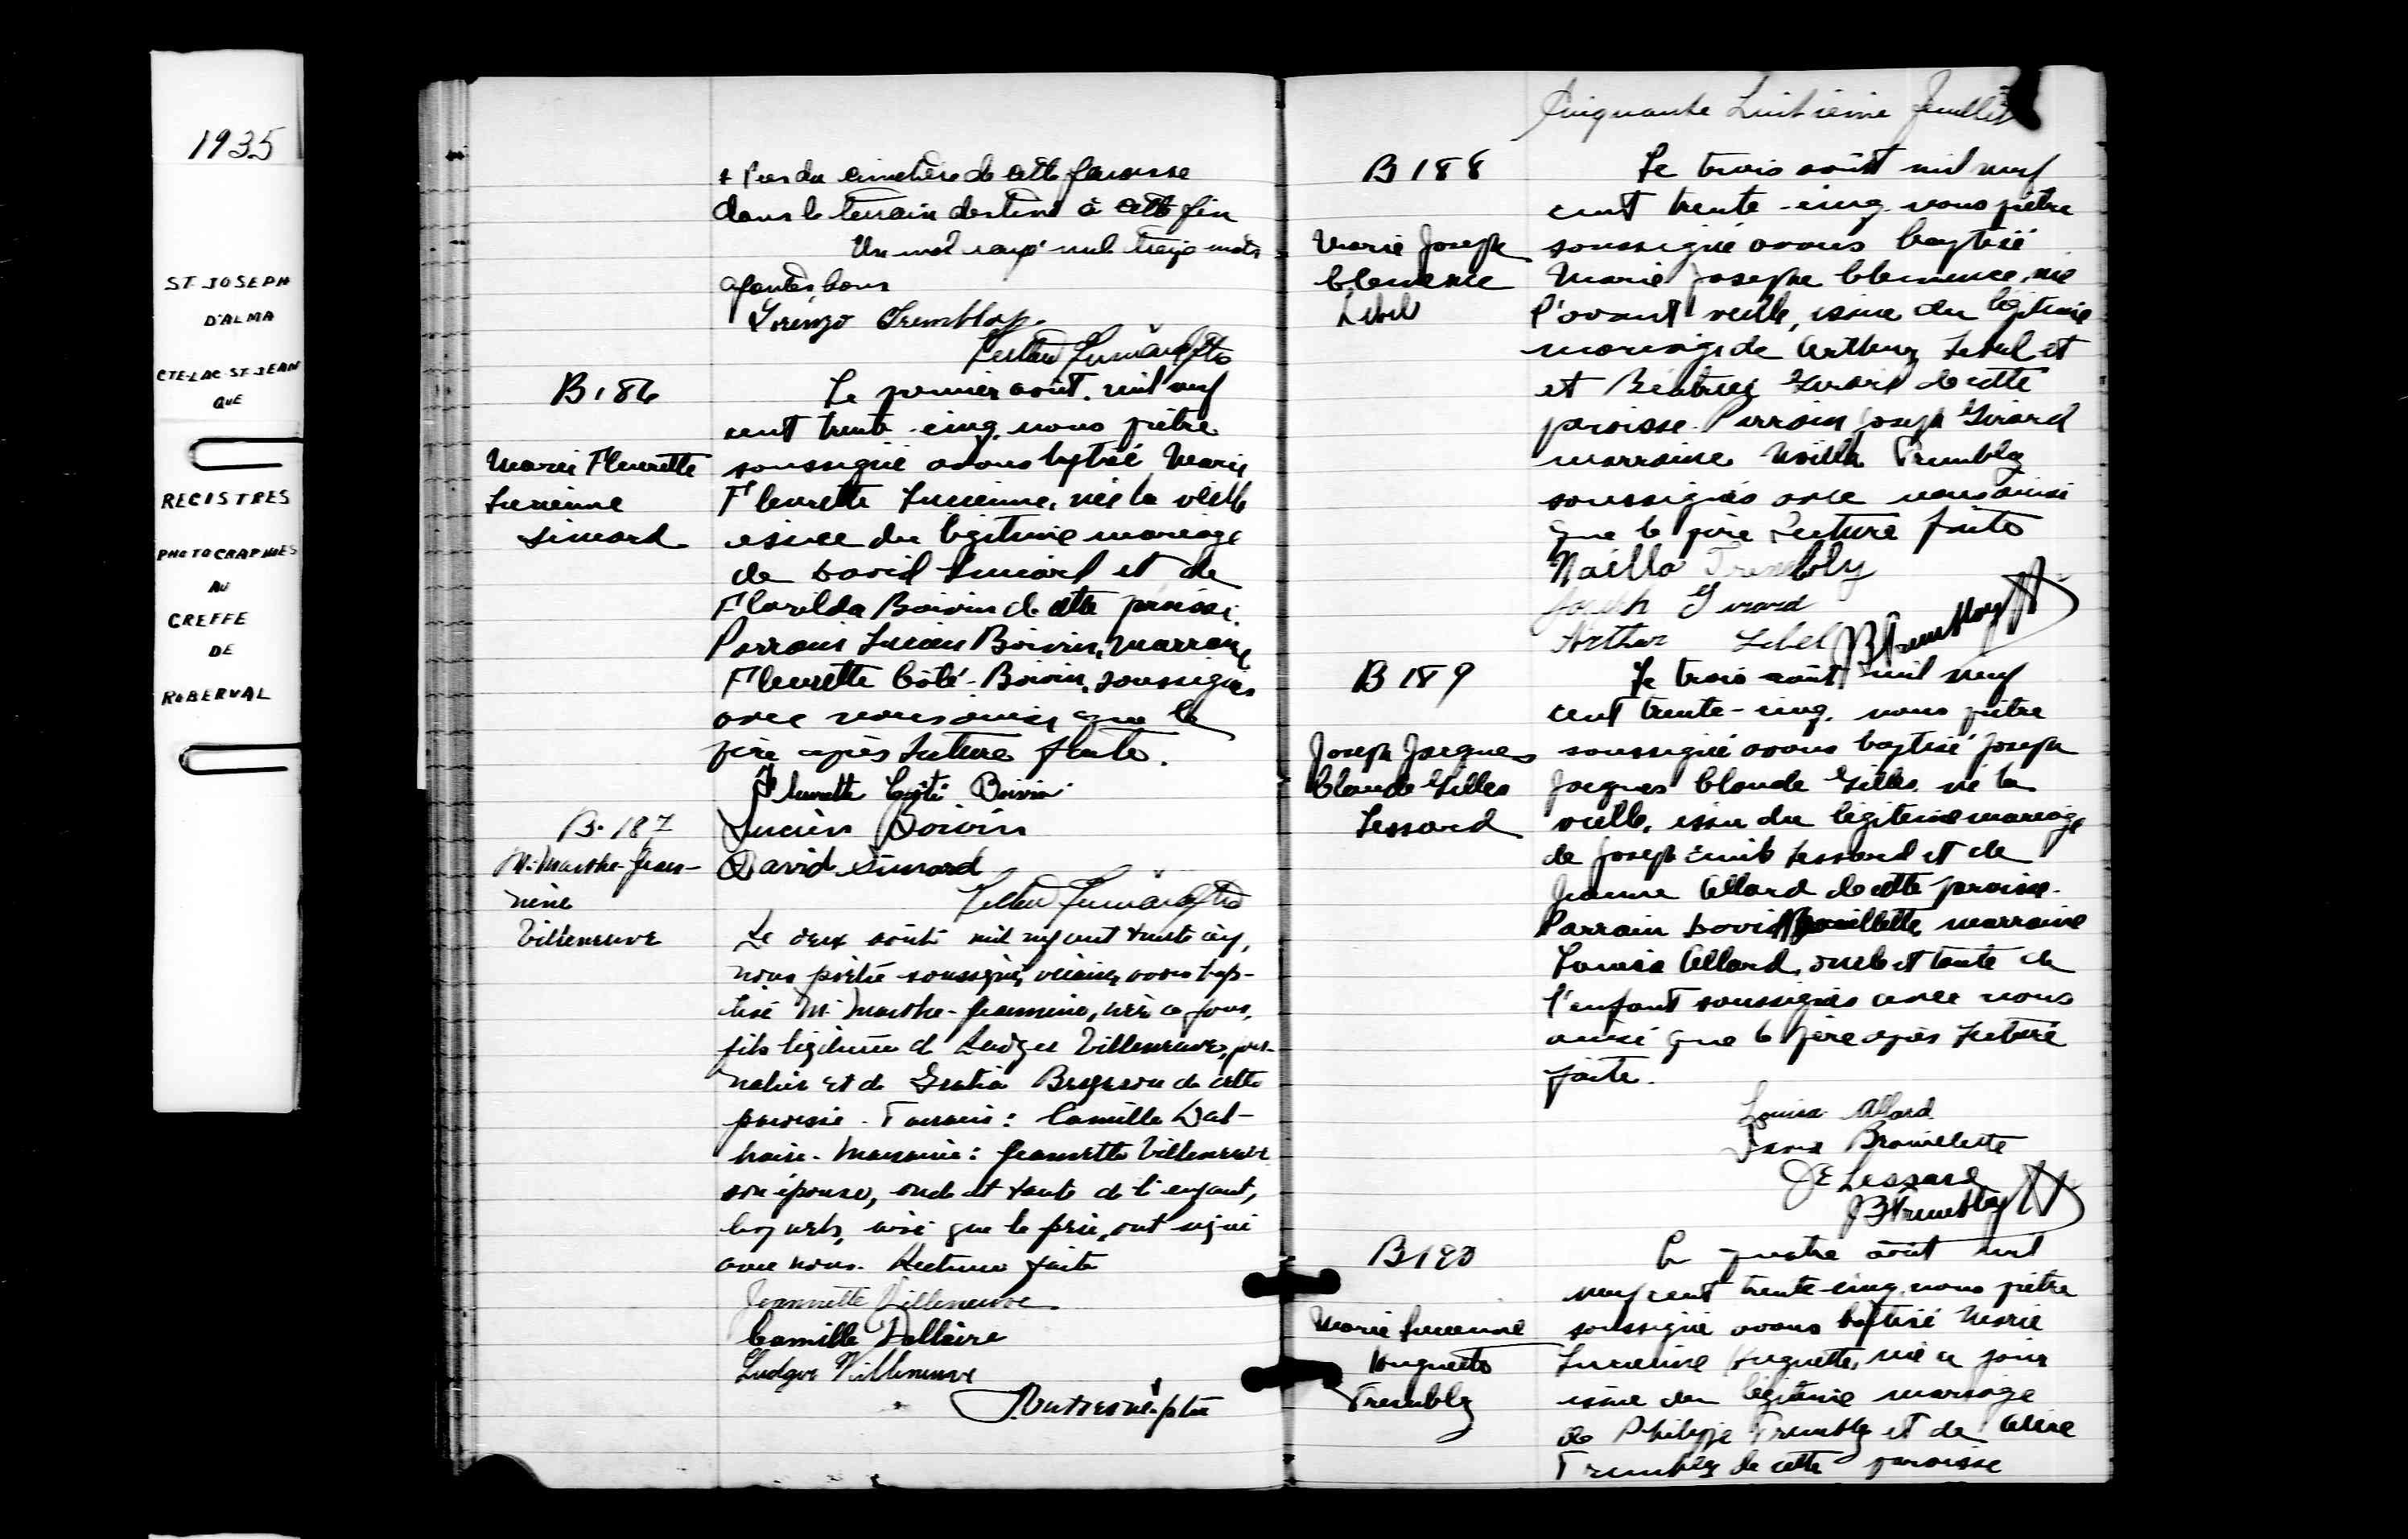 1935
ST-JOSEPH
D'ALMA
CTE-LAC-ST-JEAN
QUE
REGISTRES
PHOTOGRAPHIES
AU
GREFFE
DE
ROBERVAL
du cimetière de cette paroisse
dans le terrain destiné à cette fin
Un mot rayé nul treize mots
ajoutés bons
Lorenzo Tremblay
B 186
Marie Fleurette
Lucienne
Simard
Le premier août mil neuf
cent trente-cinq, nous prêtre
soussigné avons baptisé Marie
Fleurette Lucienne, née la veille
issue du légitime mariage
de David Simard et de
Florilda Boivin de cette paroisse.
Parrain Lucien Boivin, marraine
Fleurette Côté-Boivin, soussignés
avec nous ainsi que le
père après lecture faite.
Fleurette Côté Boivin
Lucien Boivin
David Simard
B-187
M-Marthe-Jean-
nine
Villeneuve
Le deux août mil neuf cent trente cinq,
nous prêtre soussigné, vicaire, avons bap-
tisé M-Marthe-Jeannine, née ce jour,
fils légitime de Ludger Villeneuve, jour-
nalier et de Gratia Bergeron de cette
paroisse. Parrain: Camille Dal-
laire. Marraine: Jeannette Villeneuve
son épouse, oncle et tante de l'enfant,
lesquels, ainsi que le père, ont signé
avec nous. Lecture faite
Jeannette Villeneuve
Camille Dallaire
Ludger Villeneuve
ptre
Cinquante huitième feuillet
B 188
Marie Joseph
Clemence
Lebel
Le trois août mil neuf
cent trente-cinq nous prêtre
soussigné avons baptisé
Marie Joseph Clemence, née
l'avant veille, issue du légitime
mariage de Arthur Lebel et
et Béatrice Girard de cette
paroisse. Parrain Joseph Girard
marraine Noëlla Tremblay
soussignés avec nous ainsi
que le père Lecture faite
Noëlla Trembly
Joseph Girard
Arthur Lebel
JBTremblay
B 189
Joseph Jacques
Claude Gilles
Lessard
Le trois août mil neuf
cent trente-cinq, nous prêtre
soussigné avons baptisé Joseph
Jacques Claude Gilles né la
veille, issu du légitime mariage
de Joseph Emile Lessard et de
Jeanne Allard de cette paroisse.
Parrain David Brouillette, marraine
Louisa Allard, oncle et tante de
l'enfant soussignés avec nous
ainsi que le père après lecture
faite.
Louisa Allard
David Brouillette
JE Lessard
JBTremblay
B190
Marie Lucienne
Huguette
Trembly
Le quatre août mil
neuf cent trente-cinq, nous prêtre
soussigné avons baptisé Marie
Lucienne Huguette, née ce jour
issue du légitime mariage
de Philippe Trembly et de Aline
Trembly de cette paroisse